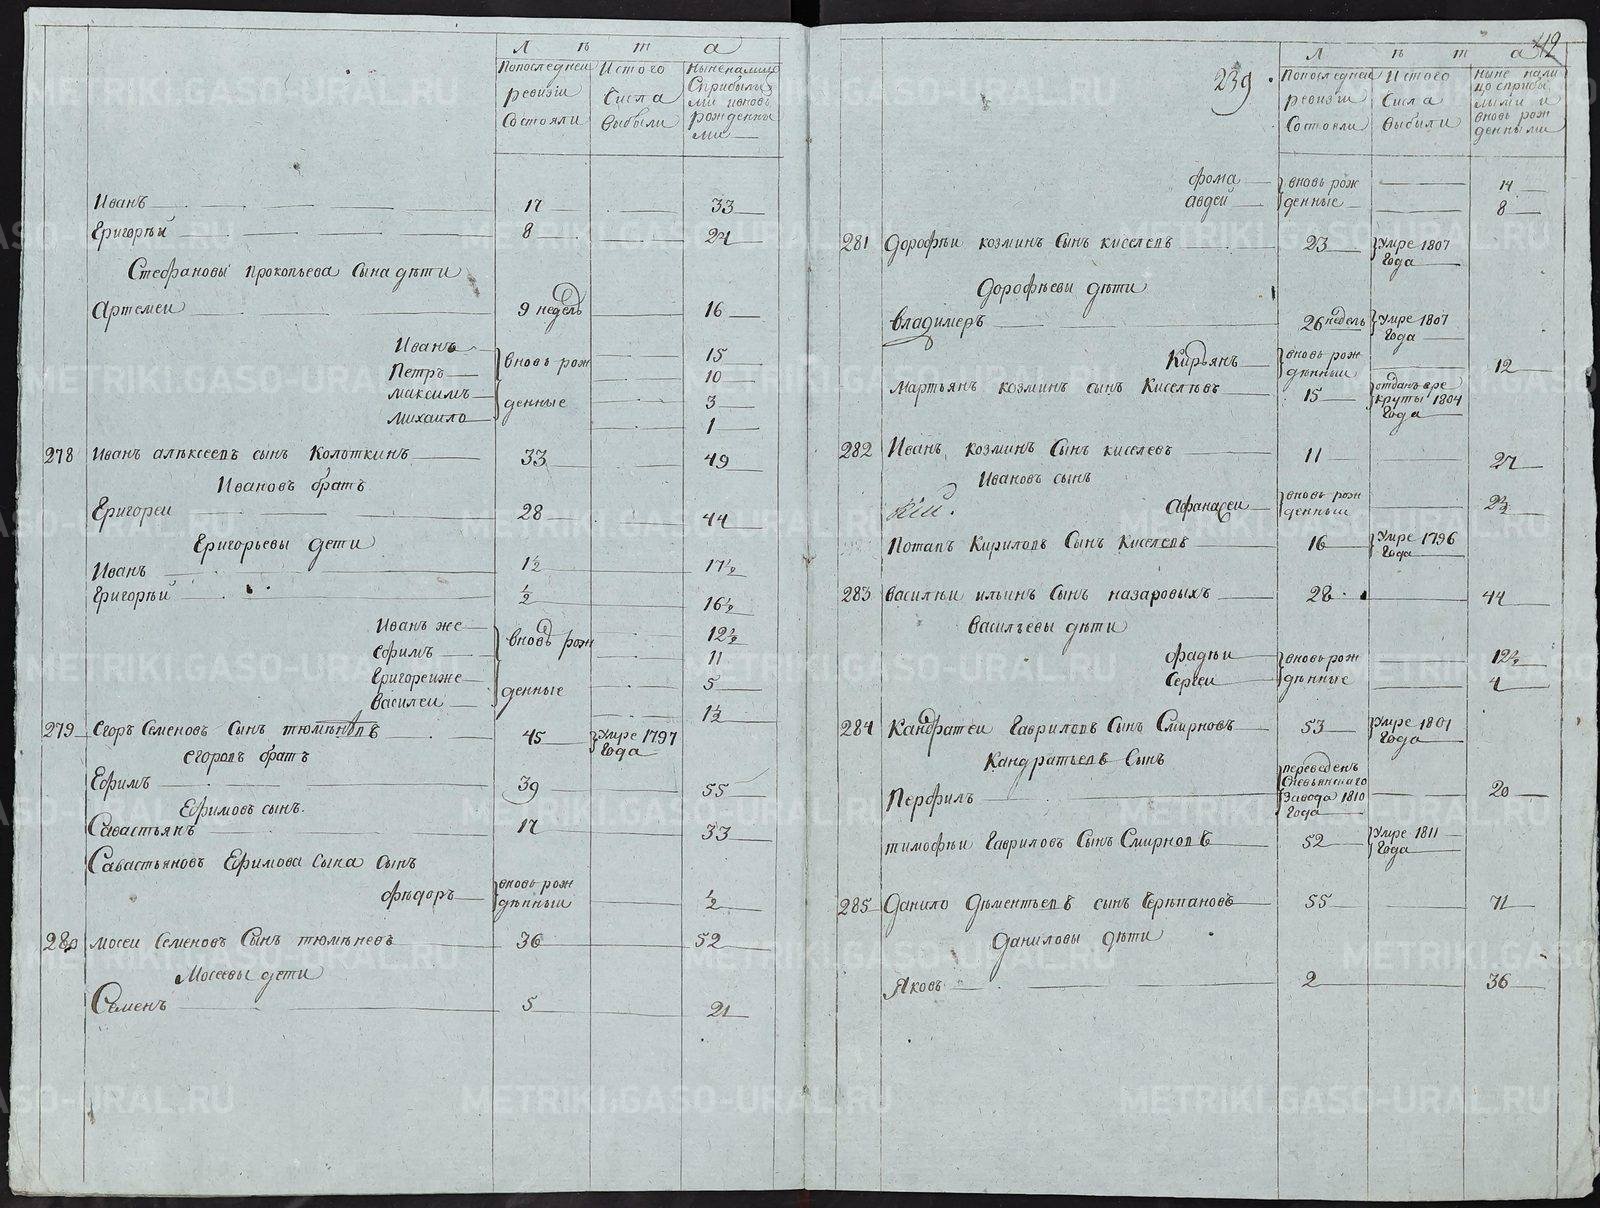 Л ѣ т а
Попоследнеи ревизіи Состояли
Истого Сисла Выбыли
Ныненалицо Сприбылыми ивновь рожденными
Иванъ 17 33
Григорѣй 8 24
Стефановы прокопьева Сына дѣти
Артемеи 9 недель 16
Иванъ 15
Петръ вновь рож 10
Максимъ денные 3
Михаило 1
278 Иванъ алѣксеевъ сынъ Колоткинъ 33 49
Ивановъ братъ
Григореи 28 44
Григорьевы дети
Иванъ 1½ 17½
Григорѣй ½ 16½
Иванъ же вновь рож 12½
Ефимъ 11
Григореиже денные 5
Василеи 1½
279 Егоръ Семеновъ Сынъ тюмѣневъ 45 Умре 1797 Года
Егоровъ братъ
Ефимъ 39 55
Ефимовъ сынъ
Савастьянъ 17 33
Савастьяновъ Ефимова сына сынъ
Фѣдоръ вновь рожденный ½
280 Мосеи Семеновъ Сынъ тюмѣневъ 36 52
Мосеевы дети
Сѣменъ 5 21
239
412
Л ѣ т а
Попоследнеи ревизіи Состояли
Истого Сисла Выбыли
Ныне налицо сприбылыми и вновь рожденными
Фома вновь рож 14
Авдеи денные 8
281 Дорофѣи козминъ Сынъ киселевъ 23 Умре 1807 Года
Дорофѣевы дѣти
Владимеръ 26 недель Умре 1807 Года
Кирьянъ вновь рождѣнный 12
Мартьянъ козминъ сынъ Киселѣвъ 15 отданъ вре круты 1804 Года
282 Иванъ козминъ Сынъ киселевъ 11 27
Ивановъ сынъ
Афанасеи вновь рожденный 2½
Потапъ Кириловъ Сынъ Киселевъ 16 Умре 1796 Года
283 Василѣи ильинъ Сынъ назаровыхъ 28 44
Васильевы дѣти
Фадѣи вновь рож 12½
Сергеи дѣнные 4
284 Кандратеи Гавриловъ Сынъ Смирновъ 53 Умре 1801 Года
Кандратьевъ Сынъ
Перфилъ переведенъ Сневьянскаго Завода 1810 Года 20
тимофѣи Гавриловъ Сынъ Смирновъ 52 Умре 1811 Года
285 Данило Дѣментьевъ сынъ Черѣпановъ 55 71
Даниловы дѣти
Яковъ 2 36
METRIKI.GASO-URAL.RU